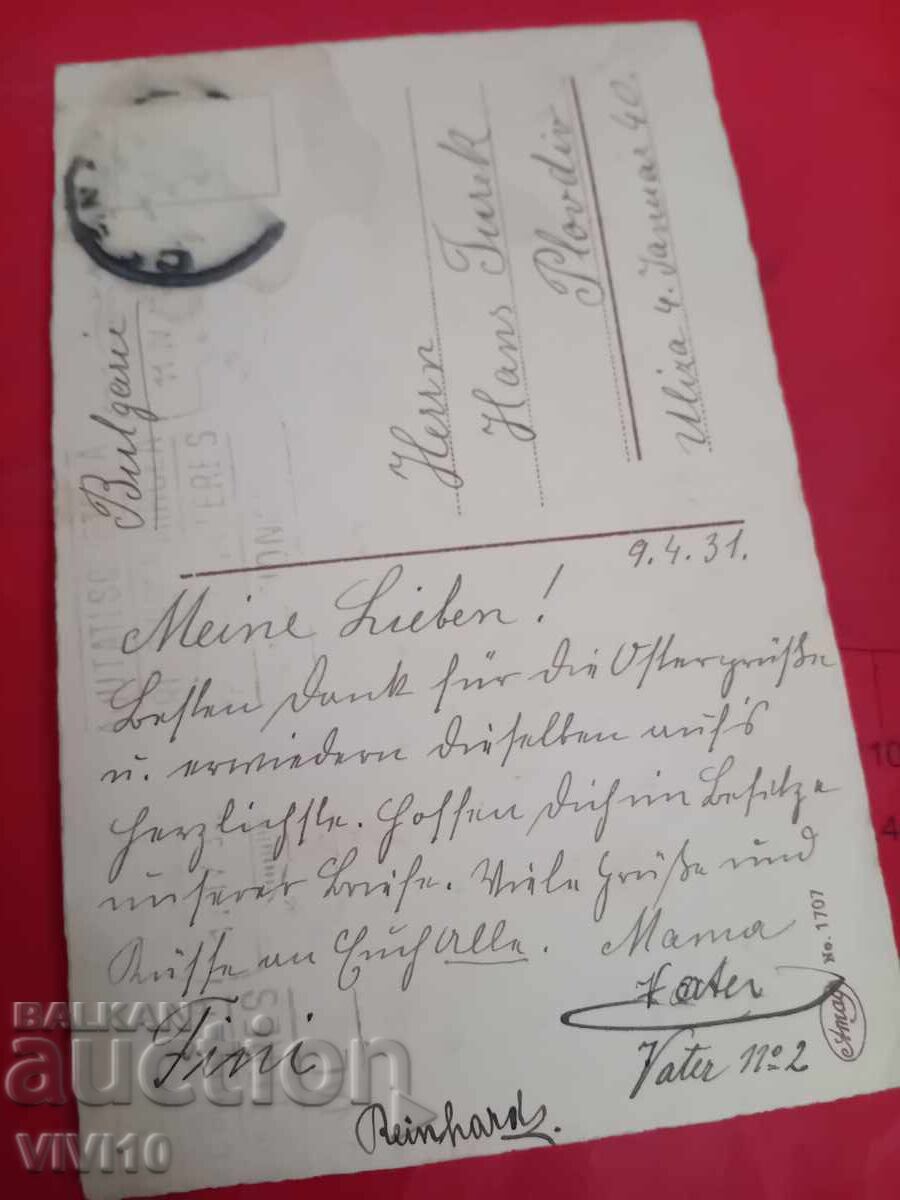 Bulgarie
Herrn
Hans Turek
Plovdiv
Uliza 4. Januar 40.
9.4.31.
Meine Lieben!
Besten Dank für die Ostergrüße
u. erwiedern dieselben auf's
herzlichste. Hoffen Dich im Besitze
unserer Briefe. Viele Grüße und
Küsse an Euch Alle. Mama
Vater
Fini
Vater No 2
Reinhard
No. 1707
Amag
BALKAN
auction
VIVI10